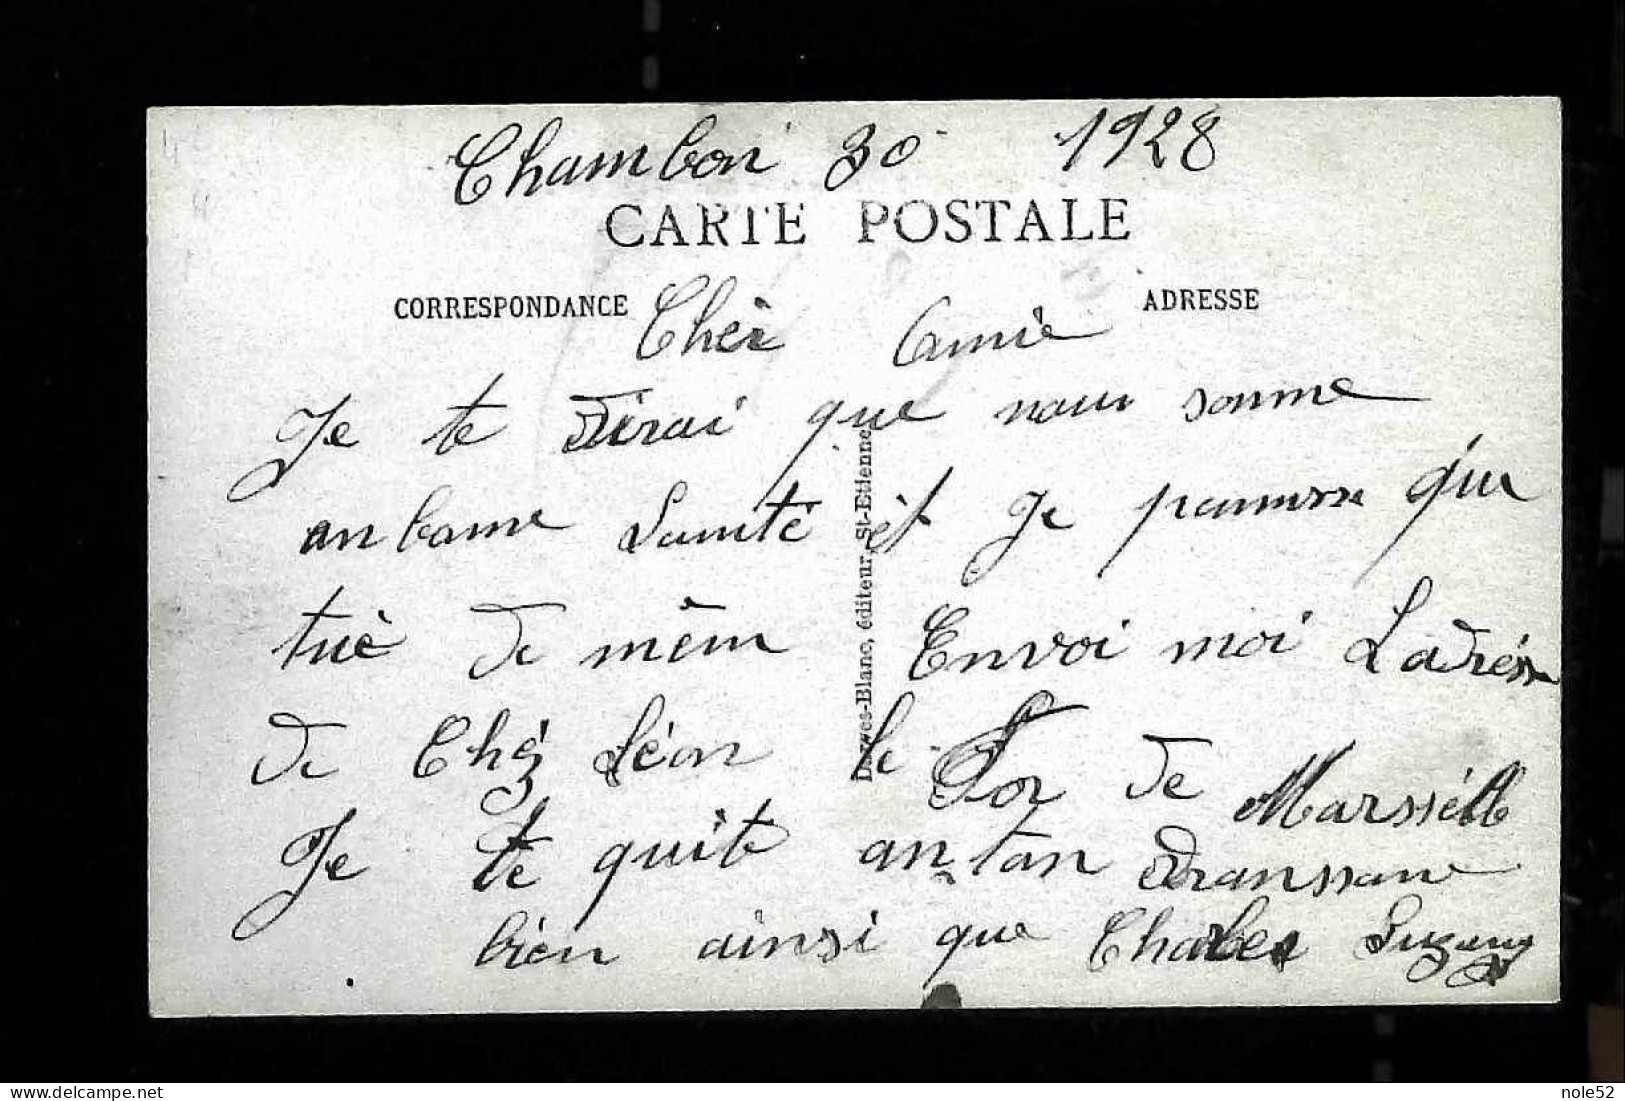 Chambon 30 1928
CARTE POSTALE
CORRESPONDANCE
ADRESSE
Chèr Amie
Je te dirai que nous somme
an bonne Santé et Je pansse que
tuè de mêm Envoi moi Ladréss
de Chéz Léon le For de Marssélle
Je te quite an tan
bien ainsi que Charles Suzane
éditeur, St-Etienne
nole52